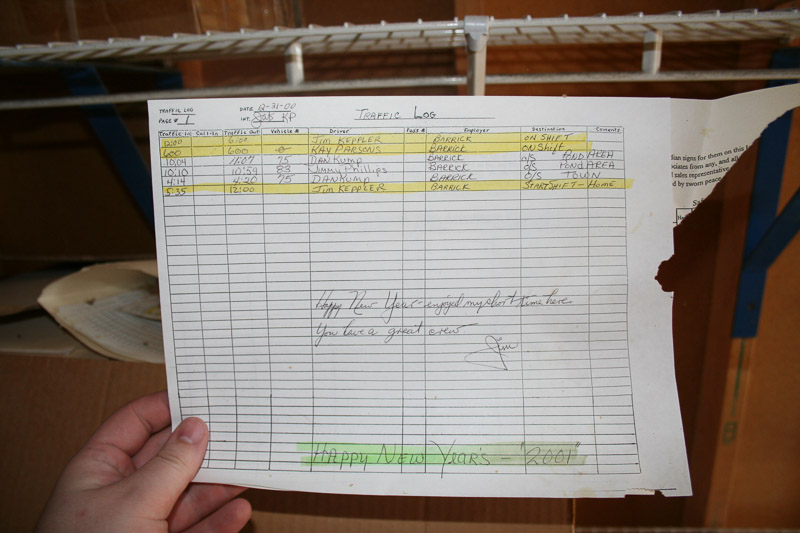 TRAFFIC LOG DATE 12-31-00
PAGE # 1 INT. KP TRAFFIC LOG
Traffic In Call-In Traffic Out Vehicle # Driver Pass # Employer Destination Coments
12:00 6:00 JIM KEPPLER BARRICK ON SHIFT
600 600 RAY PARSONS BARRICK ON Shift
10:04 11:07 75 DAN KUMP BARRICK O/S POND AREA
10:10 10:59 83 Jimmy Phillips BARRICK O/S POND AREA
4:14 4:20 75 DAN KUMP BARRICK O/S TOWN
5:35 12:00 JIM KEPPLER BARRICK START SHIFT - HOME
Happy New Year - enjoyed my short time here
You have a great crew
Jim
HAPPY NEW YEAR'S - "2001"
dian signs for them on this
ciates from any, and all
d sales representative
d by sworn peace